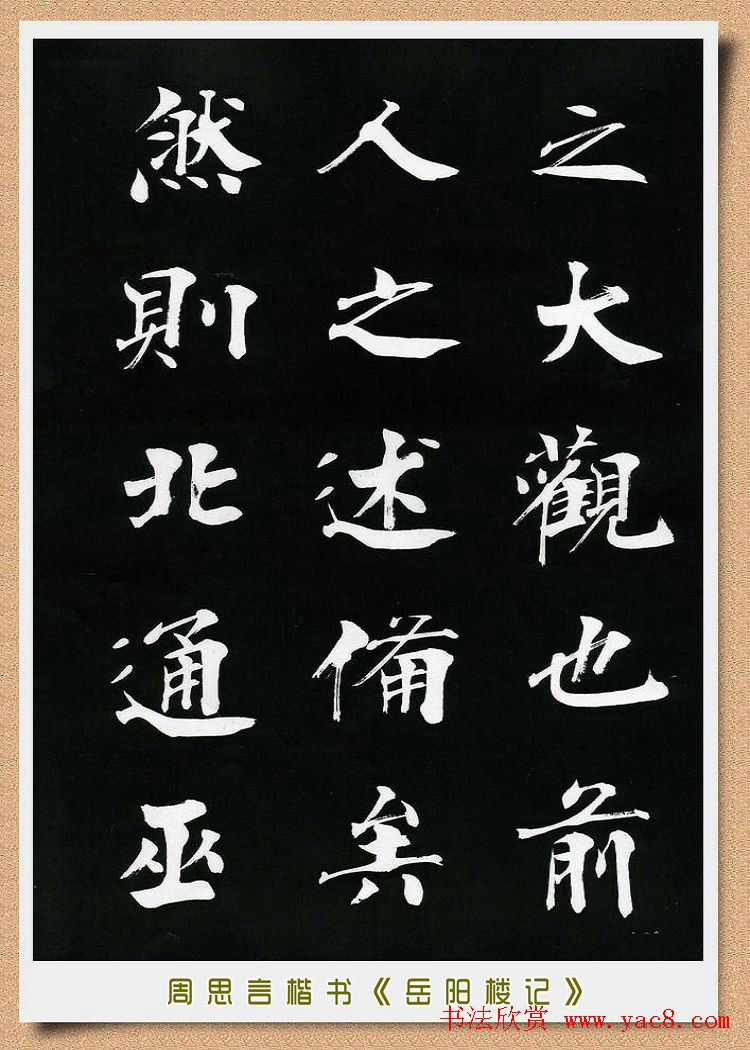 之大觀也前
人之述備矣
然則北通巫
周思言楷书《岳阳楼记》
书法欣赏 www.yac8.com